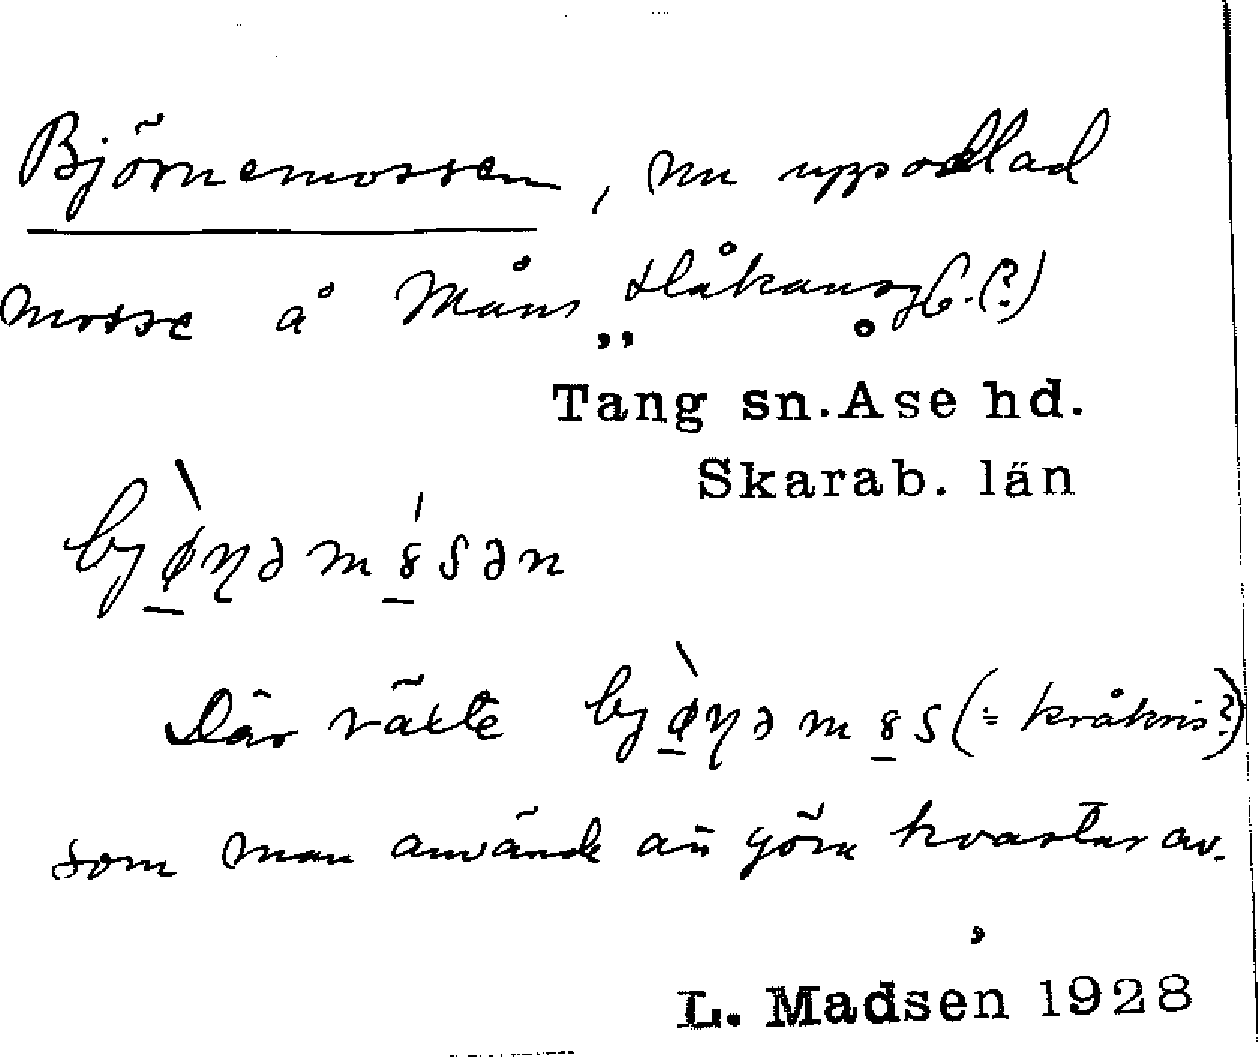 Björnemossen, nu uppodlad
mosse å Måns Håkansg.(?)
Tång sn. Åse hd.
Skarab. län
bjø̱̀ɳəmȣ̱́sən
Där växte bjø̱̀ɳəmȣ̱s (= kråkris?)
som man använde att göra kvastar av.
L. Madsen 1928